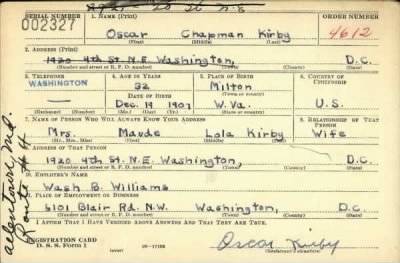 SERIAL NUMBER
1. NAME (Print)
ORDER NUMBER
002327
Oscar Chapman Kirby
4612
(First) (Middle) (Last)
2. ADDRESS (Print)
1920 4th St. N.E. Washington, D.C.
(Number and street or R. F. D. number) (Town) (County) (State)
3. TELEPHONE
4. AGE IN YEARS
5. PLACE OF BIRTH
6. COUNTRY OF CITIZENSHIP
WASHINGTON
32
Milton
DATE OF BIRTH
(Town or county)
Dec. 19 1907
W. Va.
U.S.
(Exchange) (Number)
(Mo.) (Day) (Yr.)
(State or country)
7. NAME OF PERSON WHO WILL ALWAYS KNOW YOUR ADDRESS
8. RELATIONSHIP OF THAT PERSON
Mrs. Maude Lola Kirby Wife
(Mr., Mrs., Miss) (First) (Middle) (Last)
9. ADDRESS OF THAT PERSON
1920 4th St. N.E. Washington, D.C.
(Number and street or R. F. D. number) (Town) (County) (State)
10. EMPLOYER'S NAME
Wash B. Williams
11. PLACE OF EMPLOYMENT OR BUSINESS
6101 Blair Rd. N.W. Washington, D.C
(Number and street or R. F. D. number) (Town) (County) (State)
I AFFIRM THAT I HAVE VERIFIED ABOVE ANSWERS AND THAT THEY ARE TRUE.
REGISTRATION CARD
D. S. S. Form 1
(over)
16—17105
Oscar Kirby
(Registrant's signature)
Route #4